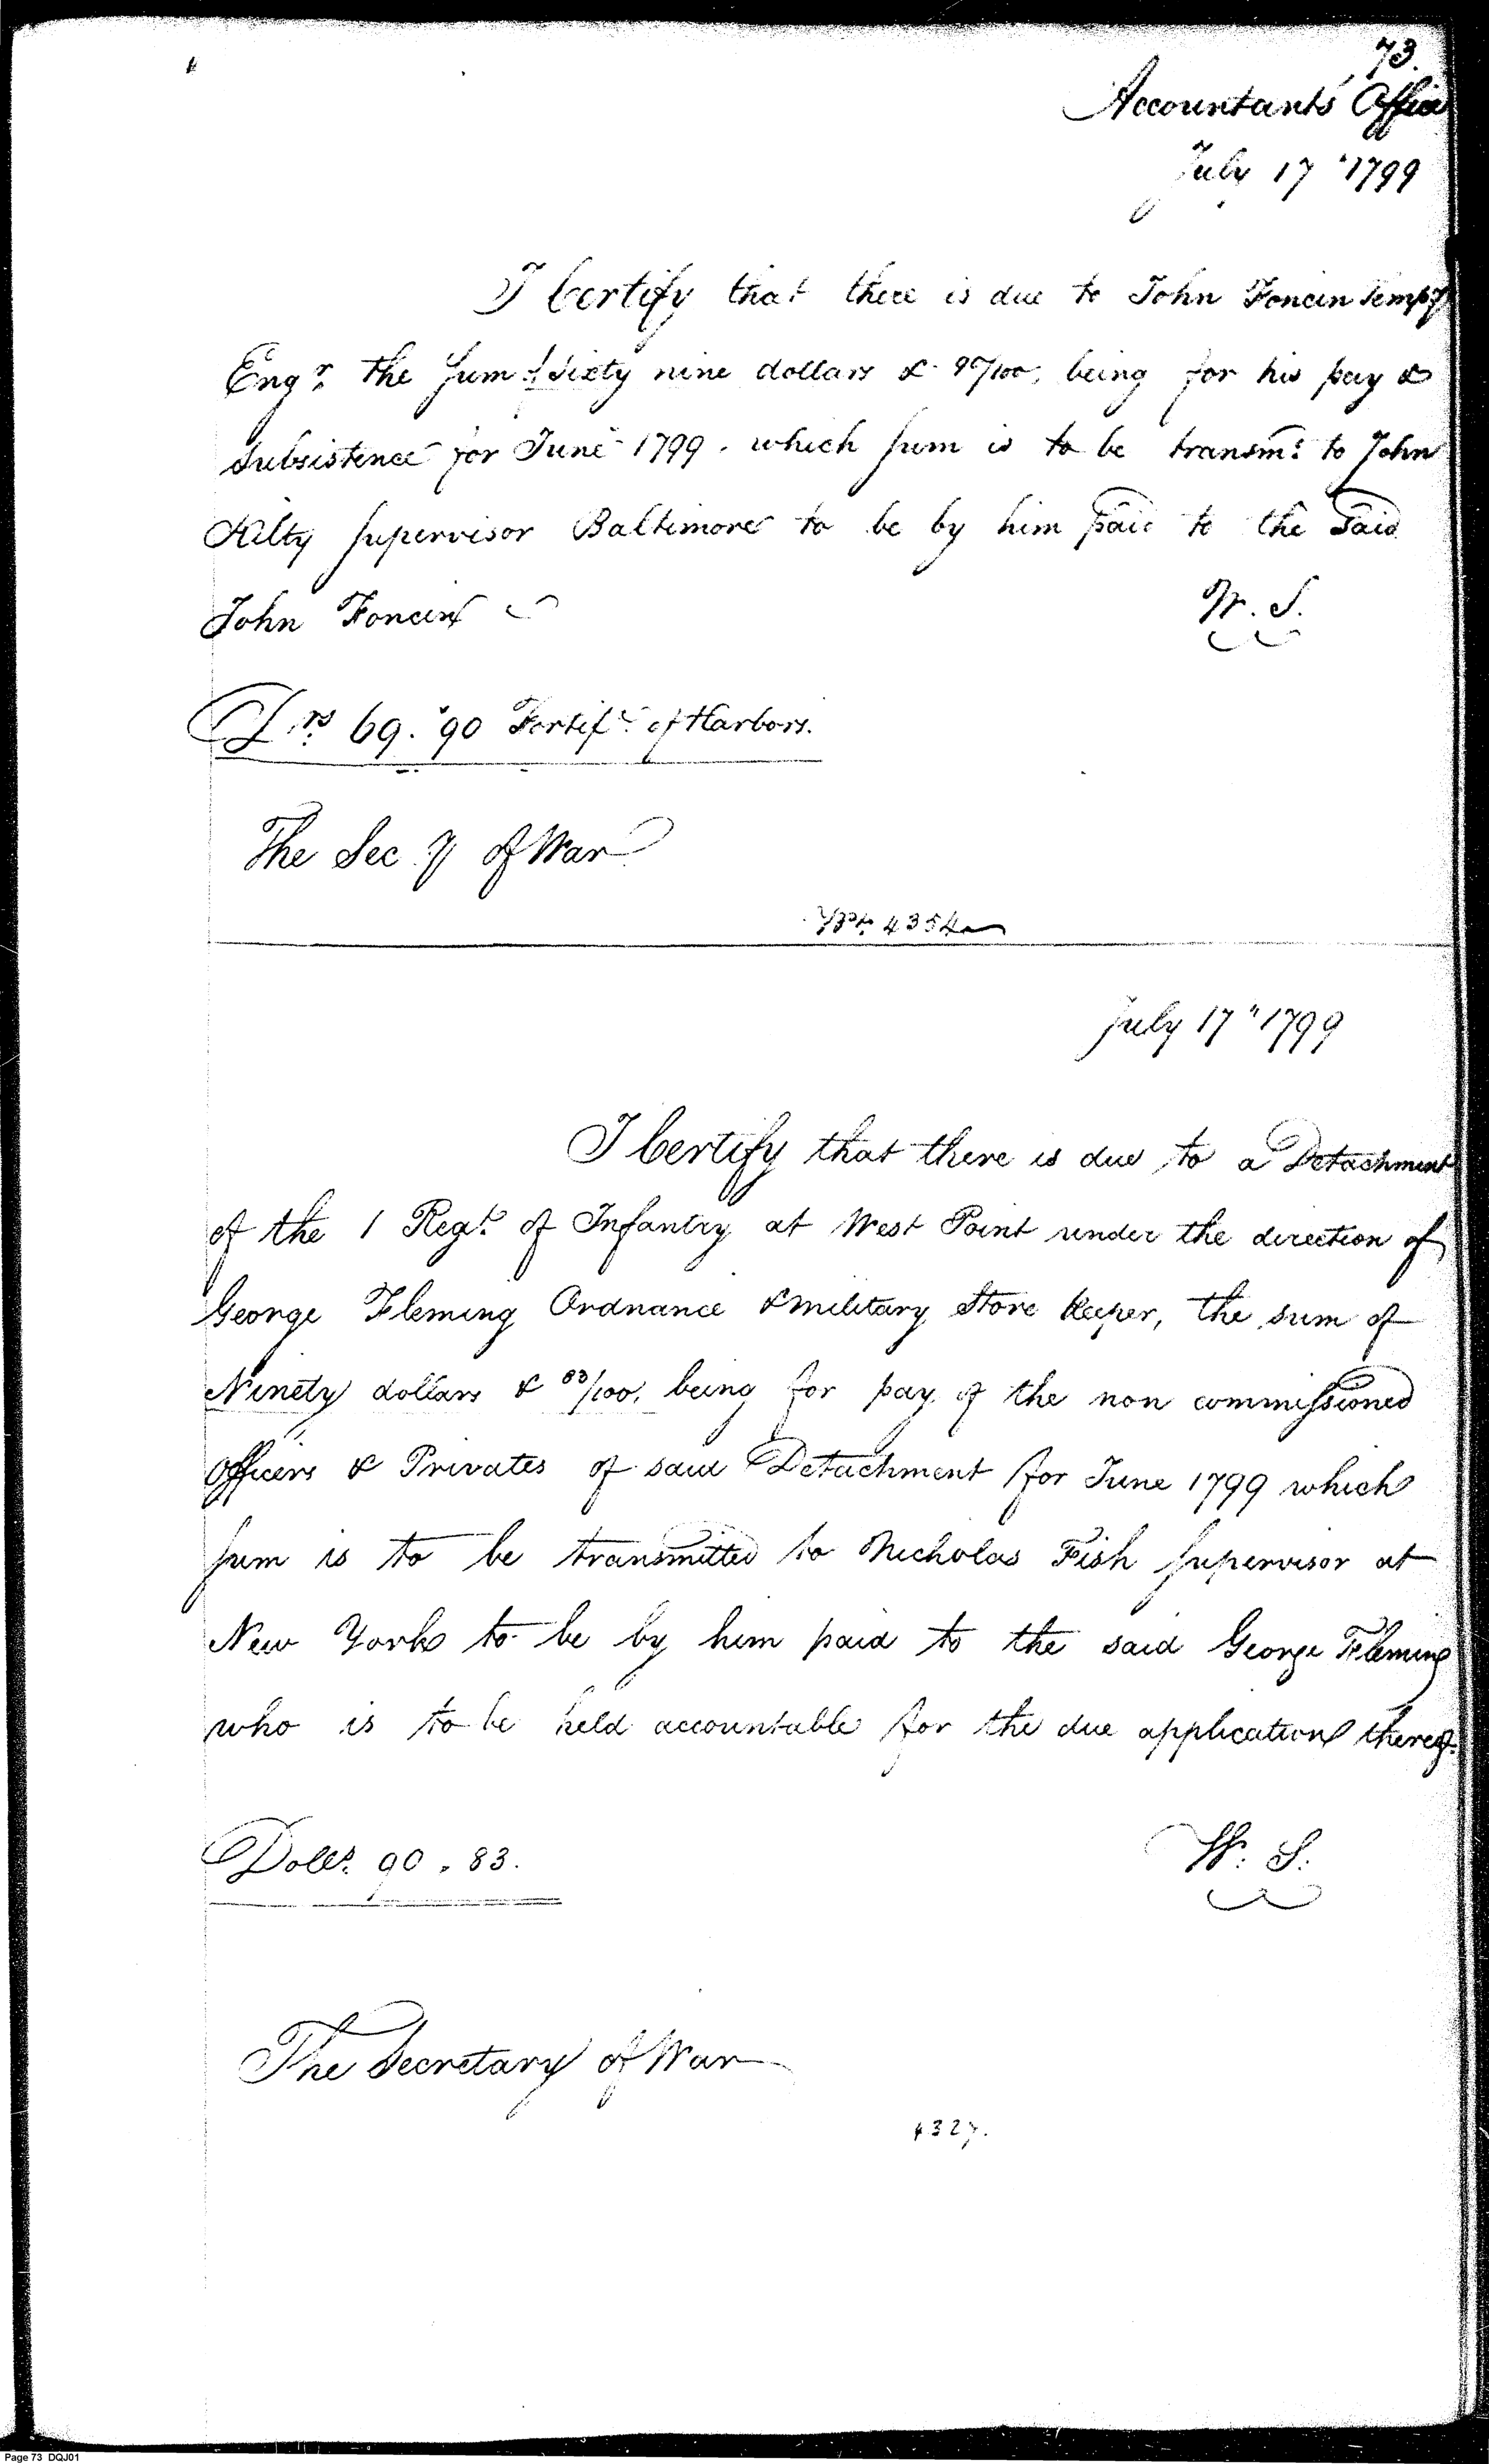 73.
Accountants Office
July 17 "1799
I Certify that there is due to John Foncin Tempy
Engr. the Sum of Sixty nine dollars & 90/100, being for his pay &
Subsistence for June 1799. which sum is to be transmd. to John
Kilty Supervisor Baltimore to be by him paid to the said
John Foncin
W. S.
Drs. 69. "90 Fortifn. of Harbors.
The Secy of War
4354
July 17 "1799
I Certify that there is due to a Detachment
of the 1 Regt. of Infantry at West Point under the direction of
George Fleming Ordnance & Military Store Keeper, the sum of
Ninety dollars & 83/100, being for pay of the non commissioned
Officers & Privates of said Detachment for June 1799 which
sum is to be transmitted to Nicholas Fish Supervisor at
New York to be by him paid to the said George Fleming
who is to be held accountable for the due application thereof.
Dolls. 90. 83.
W. S.
The Secretary of War
4327.
Page 73 DQJ01